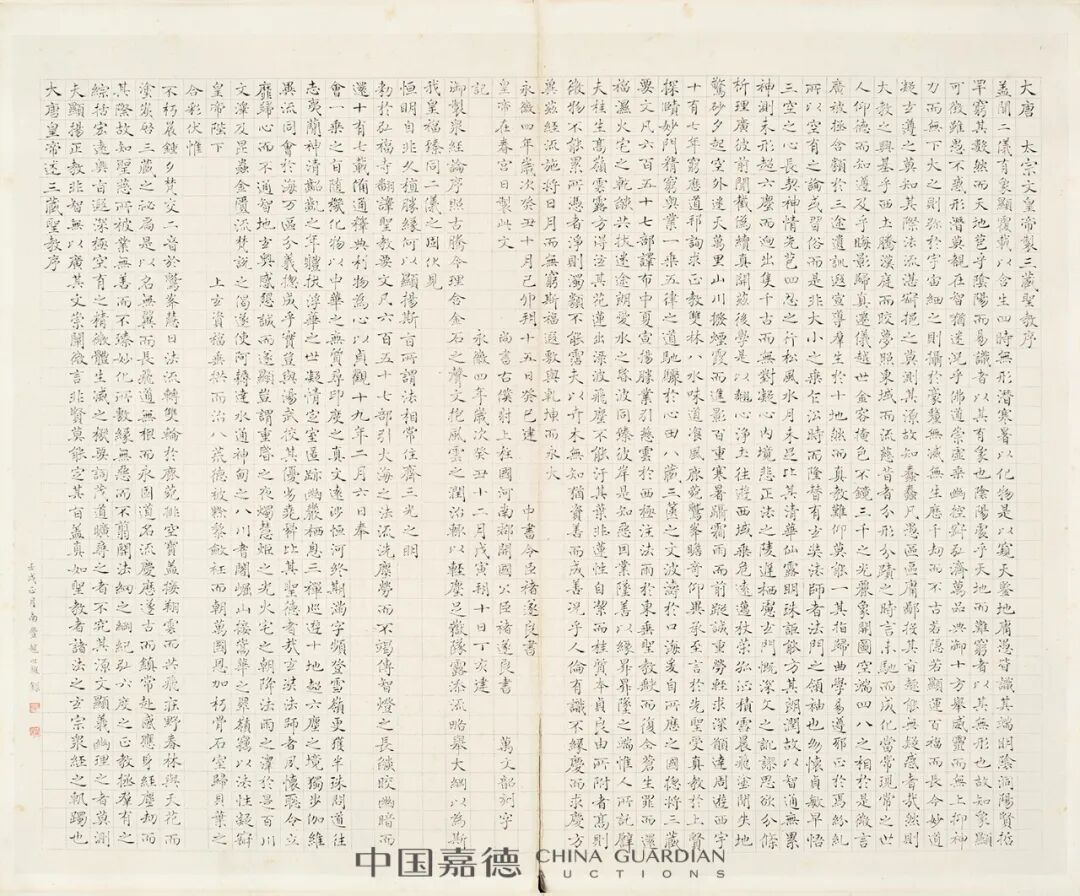 大唐 太宗文皇帝製三藏聖教序
蓋聞二儀有象顯覆載以含生四時無形潛寒暑以化物是以窺天鑒地庸愚皆識其端明陰洞陽賢哲
罕窮其數然而天地苞乎陰陽而易識者以其有象也陰陽處乎天地而難窮者以其無形也故知象顯
可徵雖愚不惑形潛莫覩在智猶迷況乎佛道崇虛乘幽控寂弘濟萬品典御十方舉威靈而無上抑神
力而無下大之則彌於宇宙細之則攝於豪釐無滅無生歷千劫而不古若隱若顯運百福而長今妙道
凝玄遵之莫知其際法流湛寂挹之莫測其源故知蠢蠢凡愚區區庸鄙投其旨趣能無疑惑者哉然則
大教之興基乎西土騰漢庭而皎夢照東域而流慈昔者分形分蹟之時言未馳而成化當常現常之世
人仰德而知遵及乎晦影歸真遷儀越世金容掩色不鏡三千之光麗象開圖空端四八之相於是微言
廣被拯含類於三途遺訓遐宣導羣生於十地然而真教難仰莫能一其指歸曲學易遵邪正於焉紛糺
所以空有之論或習俗而是非大小之乘乍沿時而隆替有玄奘法師者法門之領袖也幼懷貞敏早悟
三空之心長契神情先苞四忍之行松風水月未足比其清華仙露明珠詎能方其朗潤故以智通無累
神測未形超六塵而迥出隻千古而無對凝心內境悲正法之陵遲栖慮玄門慨深文之訛謬思欲分條
析理廣彼前聞截偽續真開茲後學是以翹心淨土往遊西域乘危遠邁杖策孤征積雪晨飛塗間失地
驚砂夕起空外迷天萬里山川撥煙霞而進影百重寒暑躡霜雨而前蹤誠重勞輕求深願達周遊西宇
十有七年窮歷道邦詢求正教雙林八水味道飡風鹿菀鷲峯瞻奇仰異承至言於先聖受真教於上賢
探賾妙門精窮奧業一乘五律之道馳驟於心田八藏三篋之文波濤於口海爰自所歷之國總將三藏
要文凡六百五十七部譯布中夏宣揚勝業引慈雲於西極注法雨於東垂聖教缺而復全蒼生罪而還
福濕火宅之乾燄共拔迷途朗愛水之昏波同臻彼岸是知惡因業墜善以緣昇昇墜之端惟人所託譬
夫桂生高嶺雲露方得泫其花蓮出淥波飛塵不能汙其葉非蓮性自潔而桂質本貞良由所附者高則
微物不能累所憑者淨則濁類不能霑夫以卉木無知猶資善而成善況乎人倫有識不緣慶而求慶方
冀茲經流施將日月而無窮斯福遐敷與乾坤而永大
永徽四年歲次癸丑十月己卯朔十五日癸巳建 中書令臣褚遂良書
大唐皇帝述三藏聖教序
夫顯揚正教非智無以廣其文崇闡微言非賢莫能定其旨蓋真如聖教者諸法之玄宗衆經之軌躅也
綜括宏遠奧旨遐深極空有之精微體生滅之機要詞茂道曠尋之者不究其源文顯義幽理之者莫測
其際故知聖慈所被業無善而不臻妙化所敷緣無惡而不翦開法網之綱紀弘六度之正教拯羣有之
塗炭啓三藏之秘扃是以名無翼而長飛道無根而永固道名流慶歷遂古而鎮常赴感應身經塵劫而
不朽晨鍾夕梵交二音於鷲峯慧日法流轉雙輪於鹿菀排空寶蓋接翔雲而共飛莊野春林與天花而
合彩伏惟
皇帝陛下 上玄資福垂拱而治八荒德被黔黎斂衽而朝萬國恩加朽骨石室歸貝葉之
文澤及昆蟲金匱流梵說之偈遂使阿耨達水通神甸之八川耆闍崛山接嵩華之翠嶺竊以法性凝寂
靡歸心而不通智地玄奧感懇誠而遂顯豈謂重昏之夜燭慧炬之光火宅之朝降法雨之澤於是百川
異流同會於海萬區分義總成乎實豈與湯武校其優劣堯舜比其聖德者哉玄奘法師者夙懷聰令立
志夷簡神清齠齔之年體拔浮華之世凝情定室匿跡幽巖栖息三禪巡遊十地超六塵之境獨步伽維
會一乘之旨隨機化物以中華之無質尋印度之真文遠涉恒河終期滿字頻登雪嶺更獲半珠問道往
還十有七載備通釋典利物為心以貞觀十九年二月六日奉
勑於弘福寺翻譯聖教要文凡六百五十七部引大海之法流洗塵勞而不竭傳智燈之長燄皎幽暗而
恒明自非久植勝緣何以顯揚斯旨所謂法相常住齊三光之明
我皇福臻同二儀之固伏見
御製衆經論序照古騰今理含金石之聲文抱風雲之潤治輒以輕塵足嶽墜露添流略舉大綱以為斯
記 永徽四年歲次癸丑十二月戊寅朔十日丁亥建
皇帝在春宮日製此文 尚書右僕射上柱國河南郡開國公臣褚遂良書 萬文韶刻字
壬戌正月南豐趙世駿錄
中国嘉德 CHINA GUARDIAN AUCTIONS